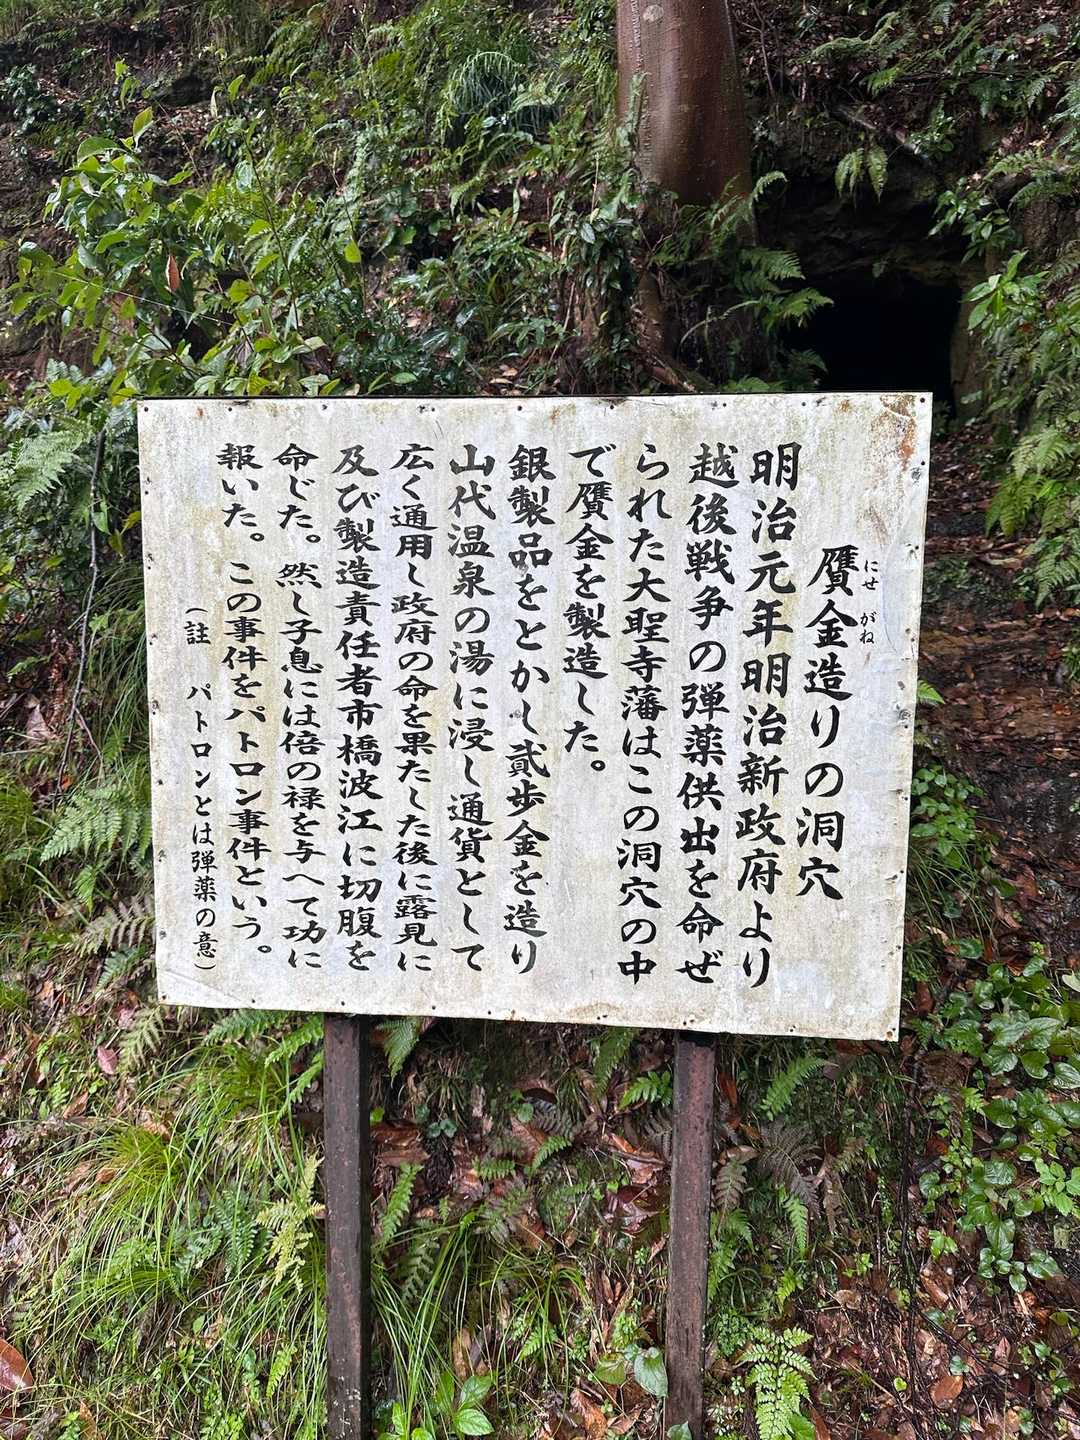 贋金造りの洞穴
にせ がね
明治元年明治新政府より
越後戦争の弾薬供出を命ぜ
られた大聖寺藩はこの洞穴の中
で贋金を製造した。
銀製品をとかし貳歩金を造り
山代温泉の湯に浸し通貨として
広く通用し政府の命を果たした後に露見に
及び製造責任者市橋波江に切腹を
命じた。然し子息には倍の禄を与へて功に
報いた。この事件をパトロン事件という。
(註 パトロンとは弾薬の意)